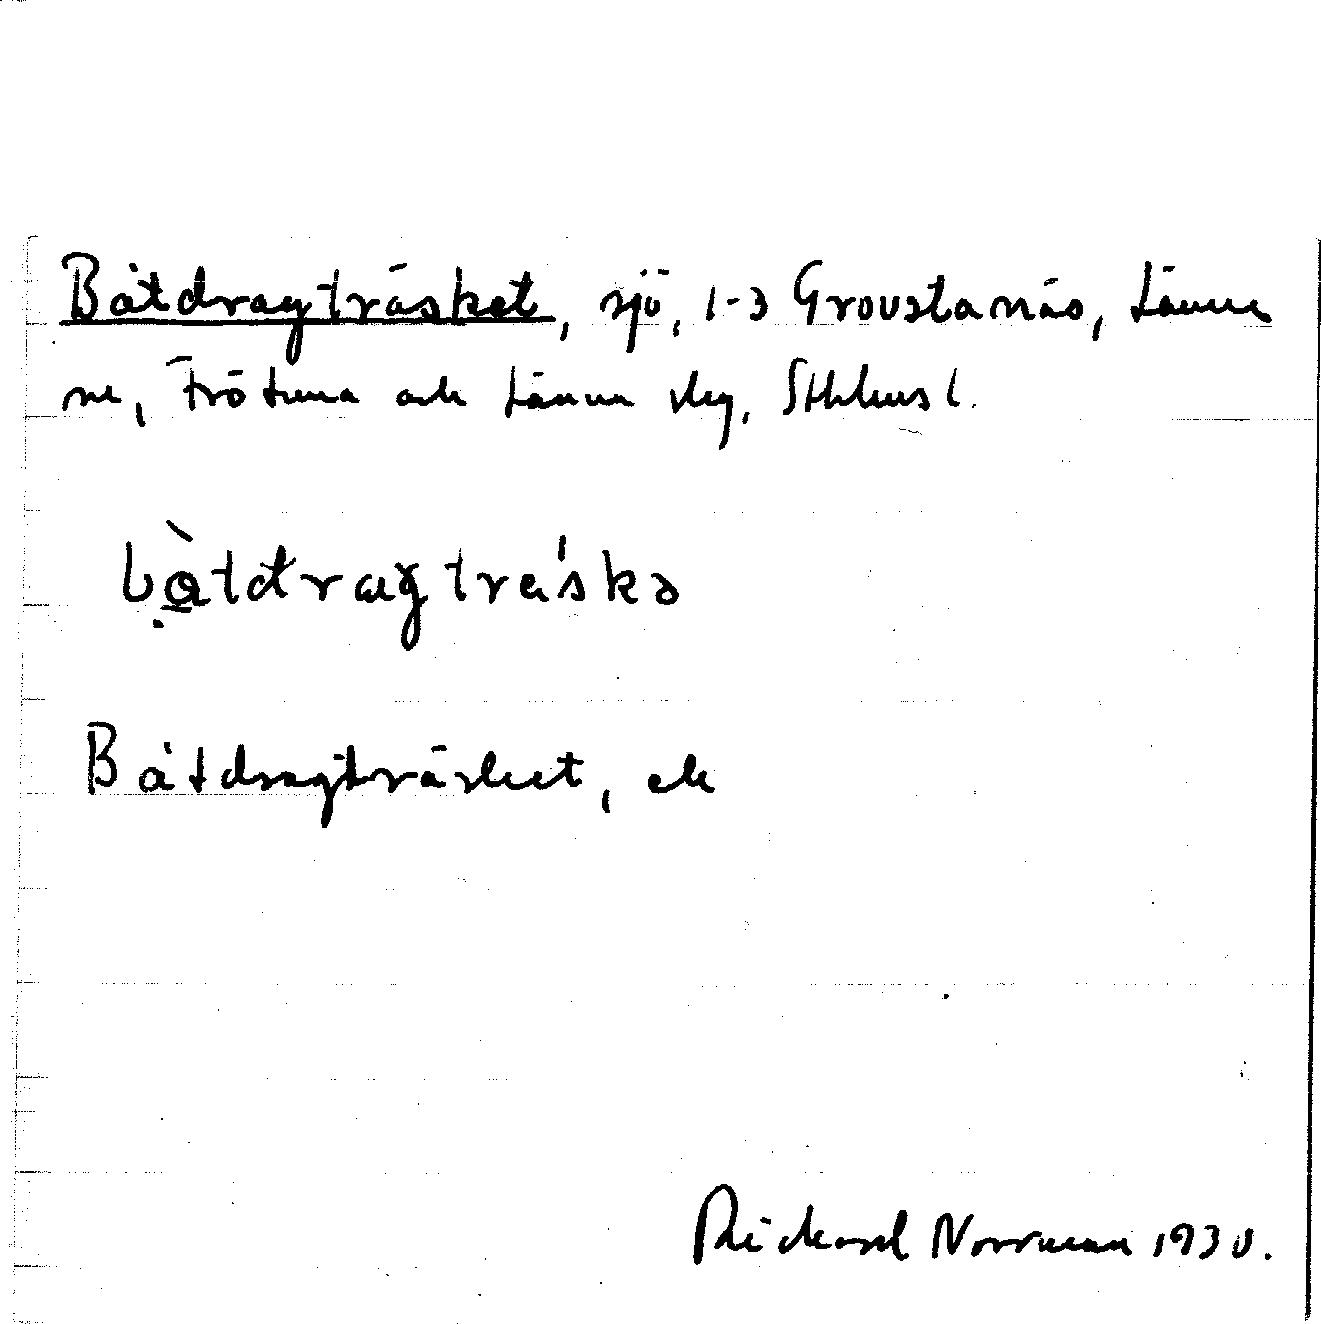 Båtdragträsket, sjö, 1-3 Grovstanäs, Länna
sn, Frötuna och Länna skg, Sthlms l.
båtdragträskə
Båtdragträsket, ek
Rickard Norrman 1930.